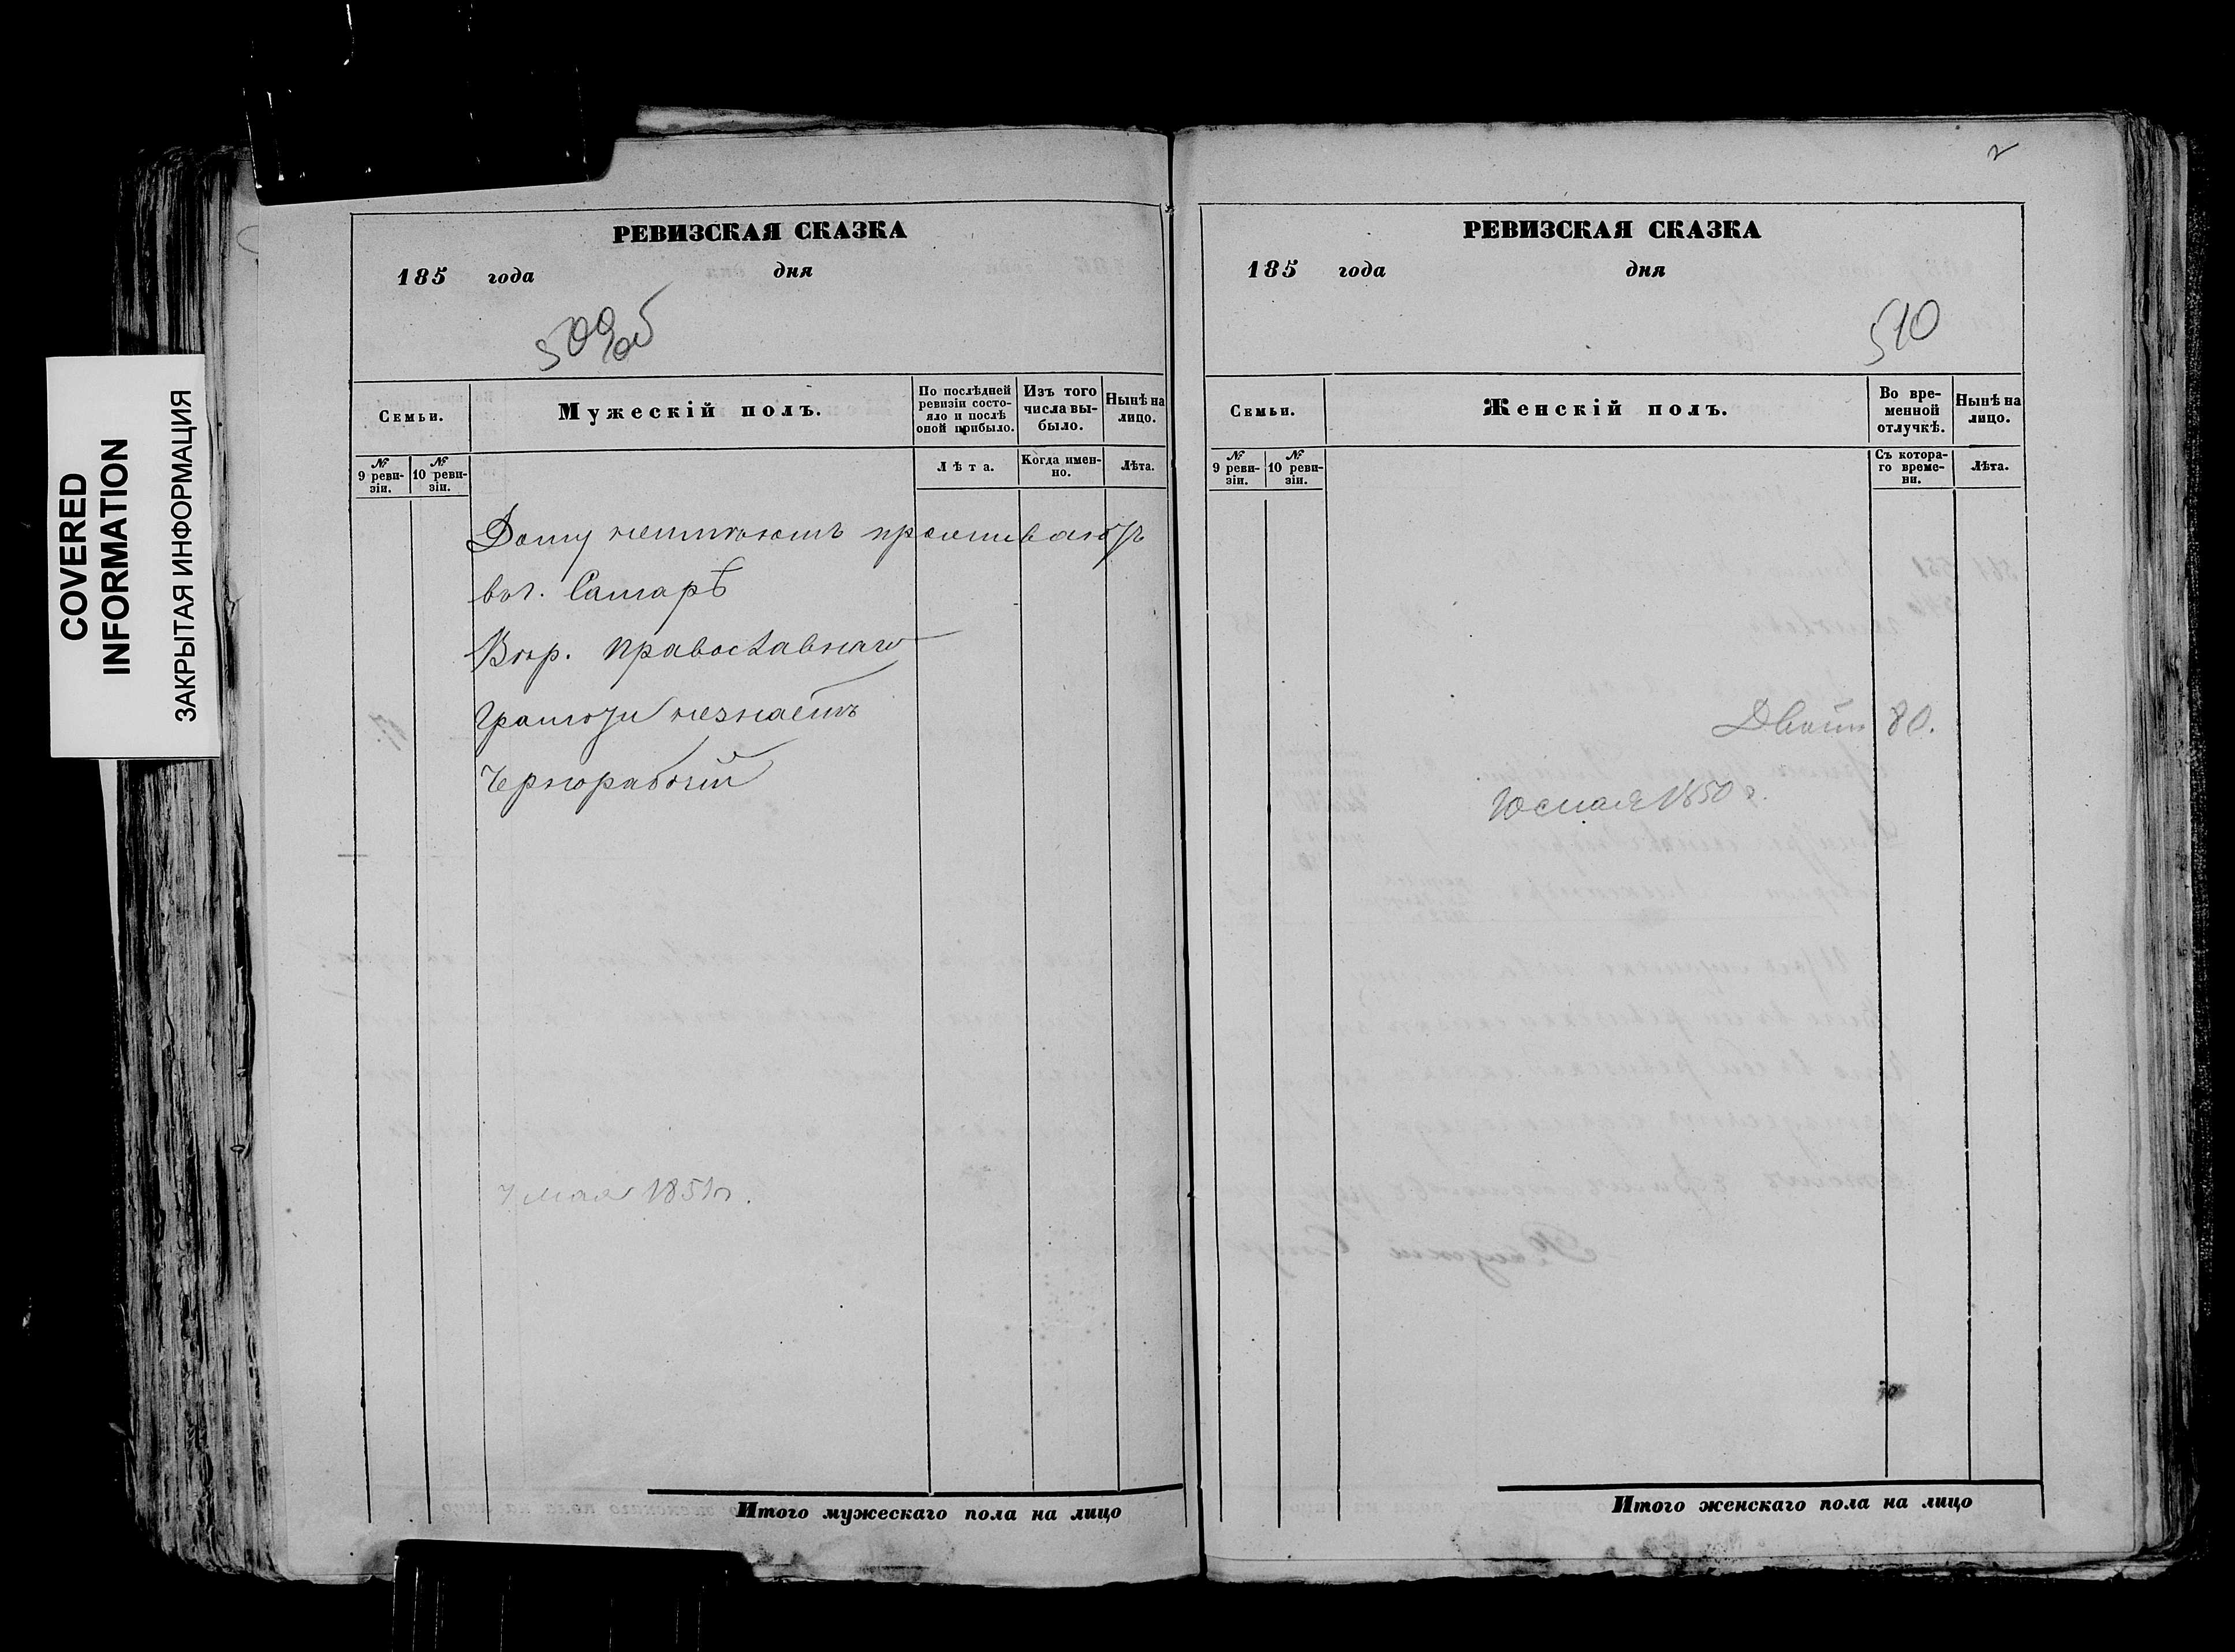 COVERED
INFORMATION
ЗАКРЫТАЯ ИНФОРМАЦИЯ
РЕВИЗСКАЯ СКАЗКА
185 года дня
509об
Семьи.
Мужескій полъ.
По послѣдней ревизіи состояло и послѣ оной прибыло.
Изъ того числа выбыло.
Нынѣ на лицо.
№ 9 ревизіи.
№ 10 ревизіи.
Лѣта.
Когда именно.
Лѣта.
Дому неимѣютъ проживаютъ
вог. Самарѣ
Вѣр. Православнаго
Грамоты незнаетъ
Чернорабочій
7 мая 1851г.
Итого мужескаго пола на лицо
2
РЕВИЗСКАЯ СКАЗКА
185 года дня
510
Семьи.
Женскій полъ.
Во временной отлучкѣ.
Нынѣ на лицо.
№ 9 ревизіи.
№ 10 ревизіи.
Съ котораго времени.
Лѣта.
80.
мая 1850 г.
Итого женскаго пола на лицо